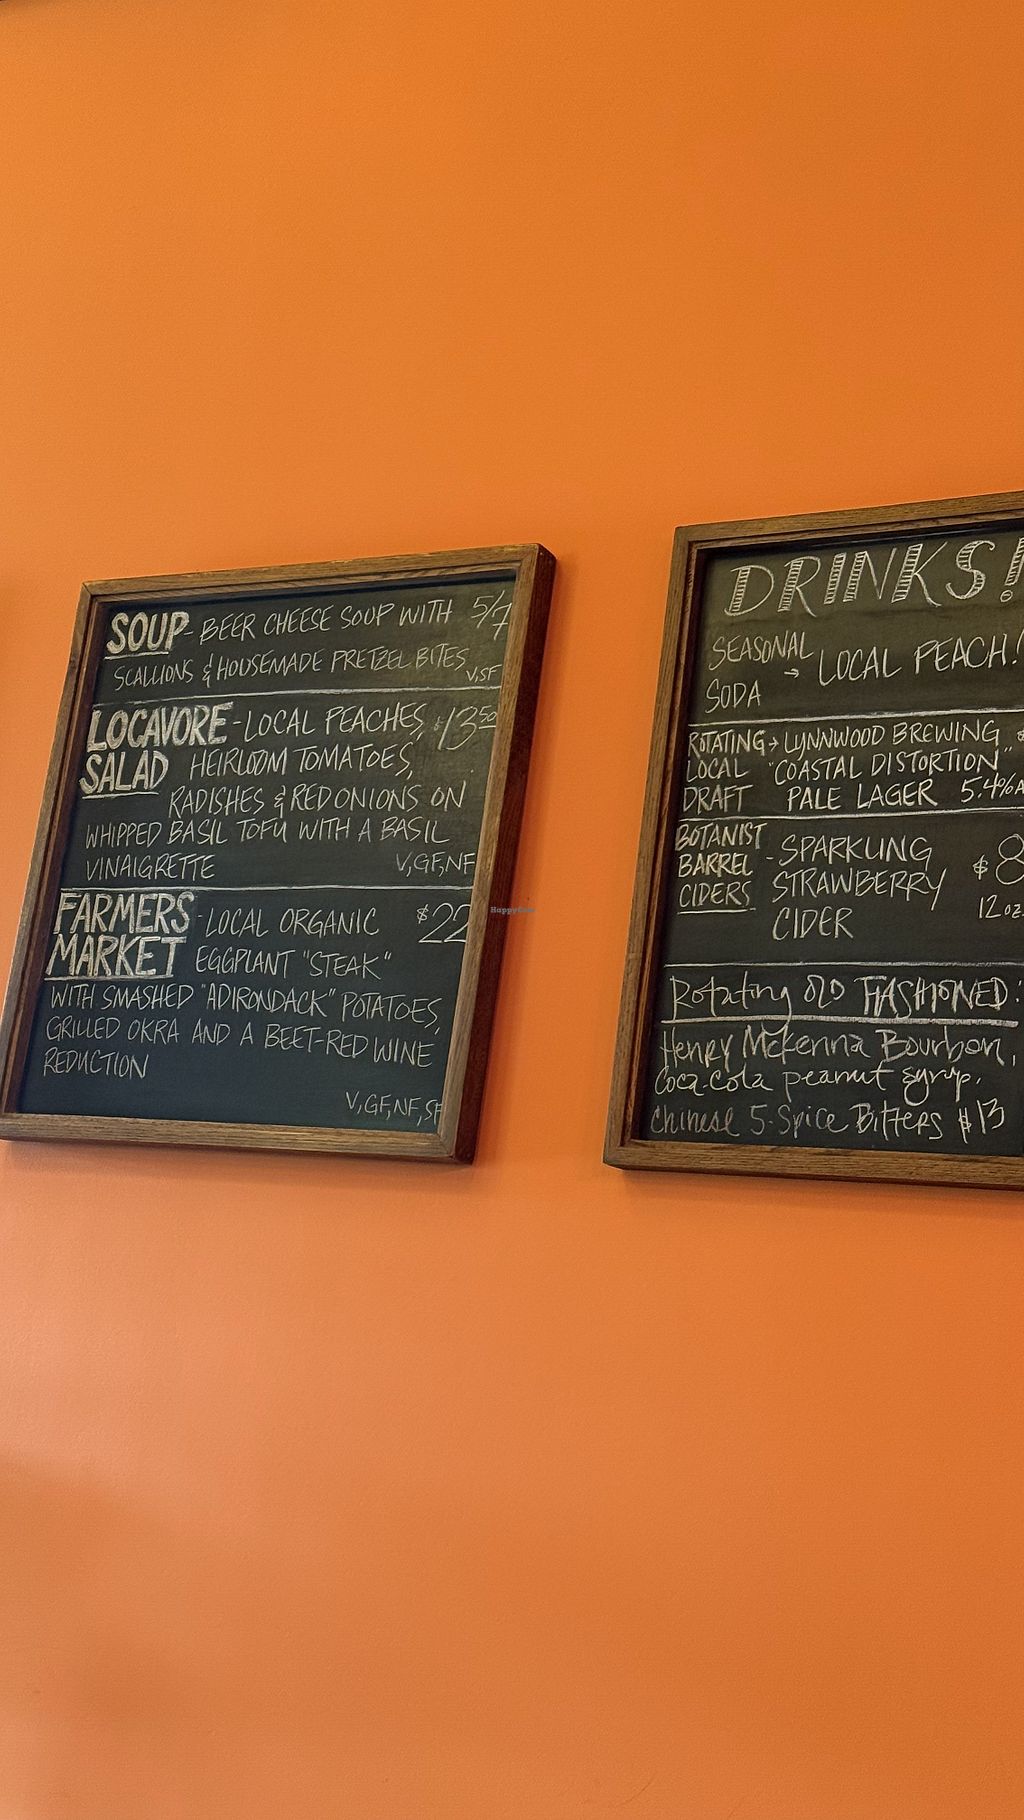 SOUP - BEER CHEESE SOUP WITH 5/7
SCALLIONS & HOUSEMADE PRETZEL BITES
V,SF
LOCAVORE - LOCAL PEACHES, $13.50
SALAD HEIRLOOM TOMATOES,
RADISHES & RED ONIONS ON
WHIPPED BASIL TOFU WITH A BASIL
VINAIGRETTE V,GF,NF
FARMERS - LOCAL ORGANIC $22
MARKET EGGPLANT "STEAK"
WITH SMASHED "ADIRONDACK" POTATOES,
GRILLED OKRA AND A BEET-RED WINE
REDUCTION
V,GF,NF,SF
HappyCow
DRINKS!
SEASONAL → LOCAL PEACH!
SODA
ROTATING → LYNNWOOD BREWING
LOCAL "COASTAL DISTORTION"
DRAFT PALE LAGER 5.4%
BOTANIST
BARREL - SPARKLING $8
CIDERS STRAWBERRY 12oz
CIDER
Rotating OLD FASHIONED:
Henry McKenna Bourbon,
Coca-Cola peanut syrup,
Chinese 5-Spice Bitters $13